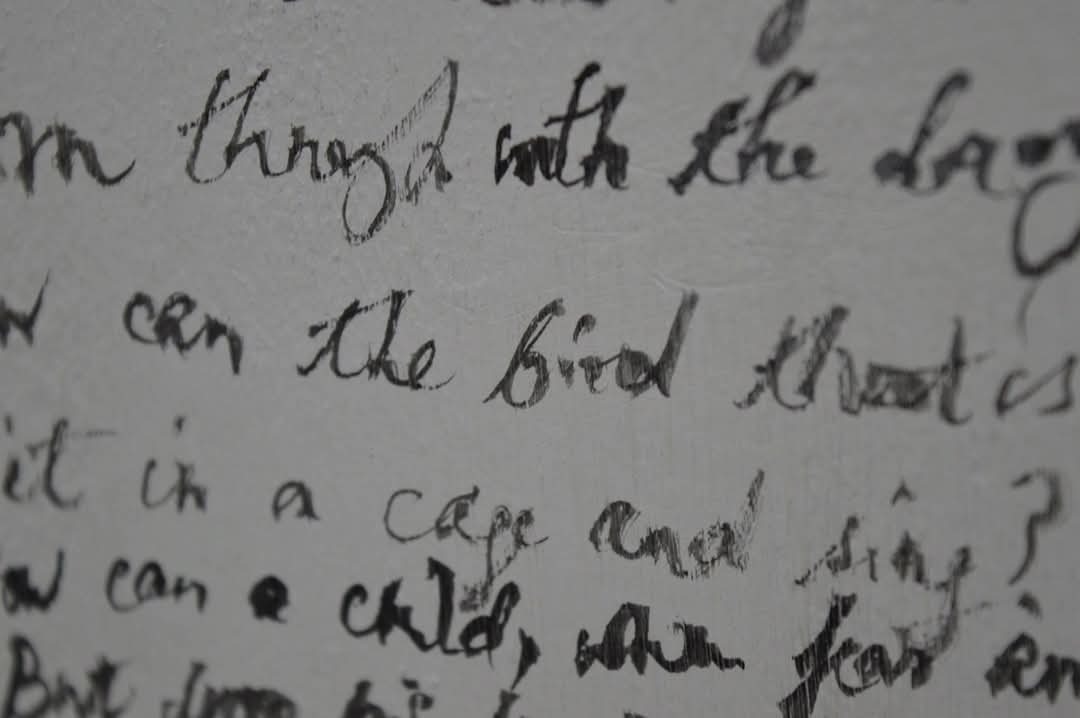 rn through with the drea
w can the bird that is
it in a cage and sing?
ow can a child, when fear an
But droop his